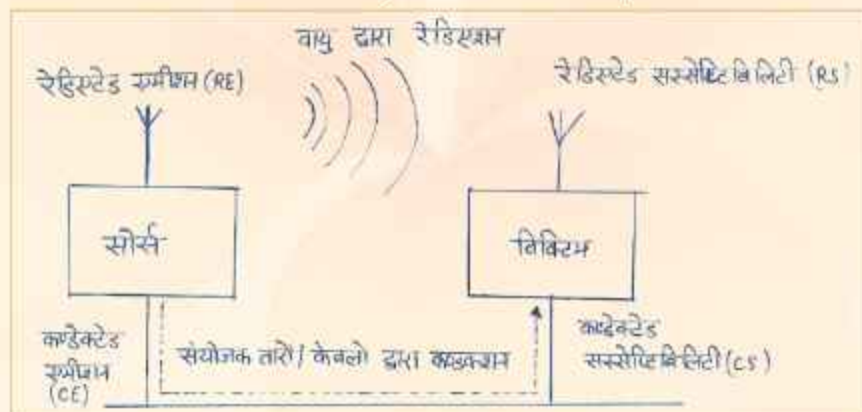 वायु द्वारा रेडिएशन
रेडिएटेड एमीशन (RE)
रेडिएटेड सस्सेप्टिबिलिटी (RS)
सोर्स
विक्टिम
कण्डेक्टेड
एमीशन
(CE)
संयोजक तारों/ केबलो द्वारा कण्डक्शन
कण्डेक्टेड
सस्सेप्टिबिलिटी (CS)